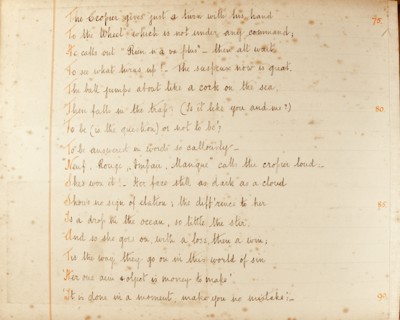 The Cropier gives just a turn with his hand 70.
To the Wheel which is not under any command,
He calls out "Rien n'a va plus" – then all wait
To see what turns up!. The suspense now is great.
The ball jumps about like a cork on the sea,
Then falls in the trap (Is it like you and me?) 80.
To be (is the question) or not to be,
To be answered in words so callously –
"Neuf, Rouge, Impair, Manque" calls the cropier loud –
She's won it! – Her face still as dark as a cloud
Shows no sign of elation; the diff'rence to her 85.
Is a drop to the ocean, so little the stir.
And so she goes on, with a loss, then a win;
'Tis the way they go on in this world of sin
Her one aim & object is money to make.
It is done in a moment, make you no mistake: – 90.